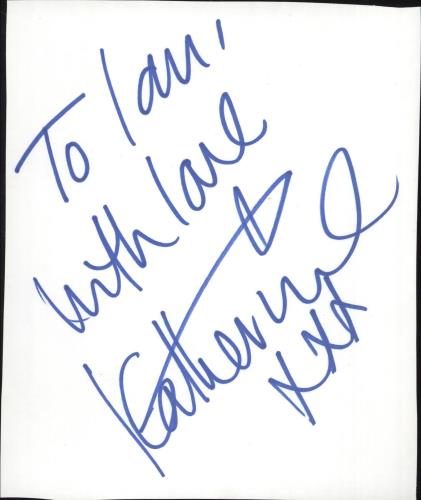 To Ian,
with love
Katherine
xxx